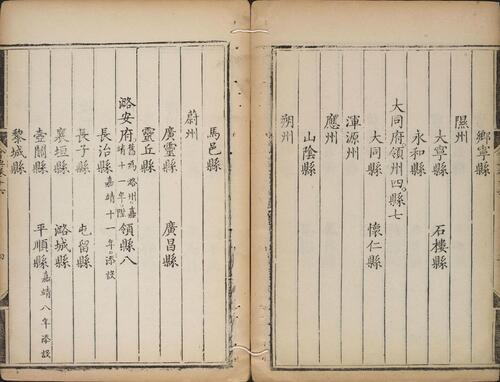 鄉寧縣
隰州
大寧縣 石樓縣
永和縣
大同府領州四縣七
大同縣 懷仁縣
渾源州
應州
山陰縣
朔州
馬邑縣
蔚州
廣靈縣 廣昌縣
靈丘縣
潞安府舊爲潞州嘉靖十一年陞領縣八
長治縣嘉靖十一年添設
長子縣 屯留縣
襄垣縣 潞城縣
壺關縣 平順縣嘉靖八年添設
黎城縣